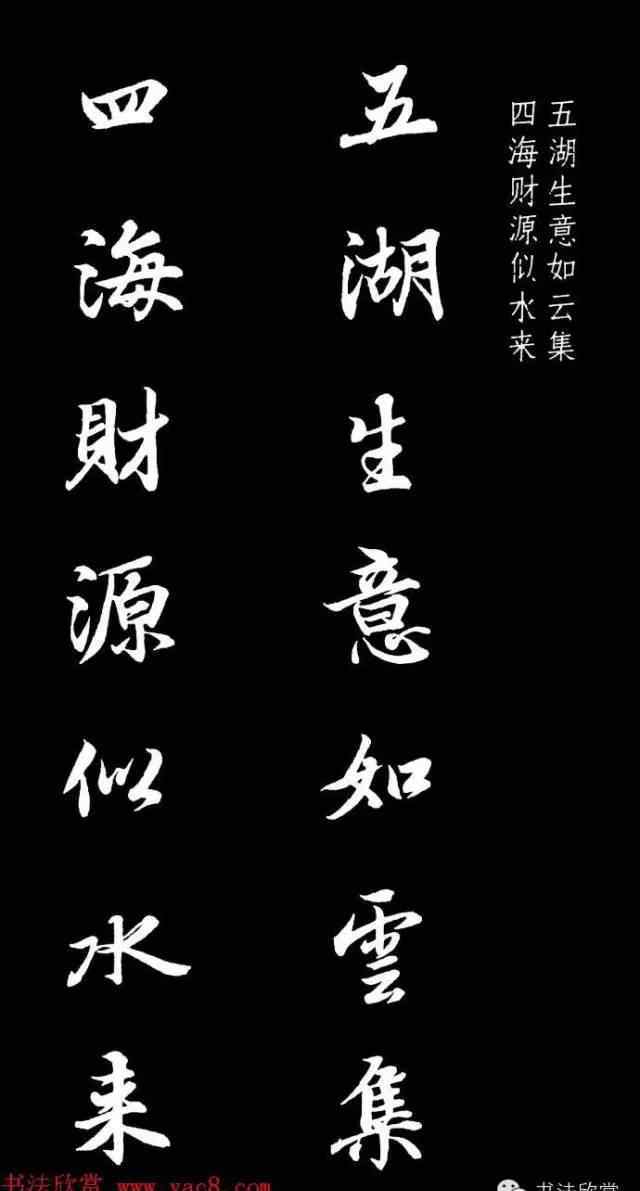 五湖生意如云集
四海财源似水来
五湖生意如雲集
四海財源似水来
书法欣赏 www.yac8.com
书法欣赏